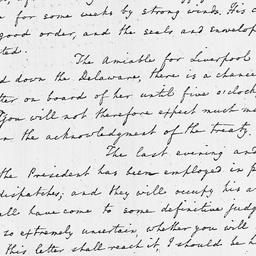 for some weeks by strong winds. His
good order, and the seals and envelop
ted.
The Amiable for Liverpool
d down the Delaware, there is a chance
tter on board of her until five o'clock
You will not therefore expect much m
n the acknowledgment of the treaty.
The last evening and
the President has been employed in p
dispatches; and they will occupy his a
all have come to some definitive judg
so extremely uncertain, whether you will
this letter shall reach it, I should be h